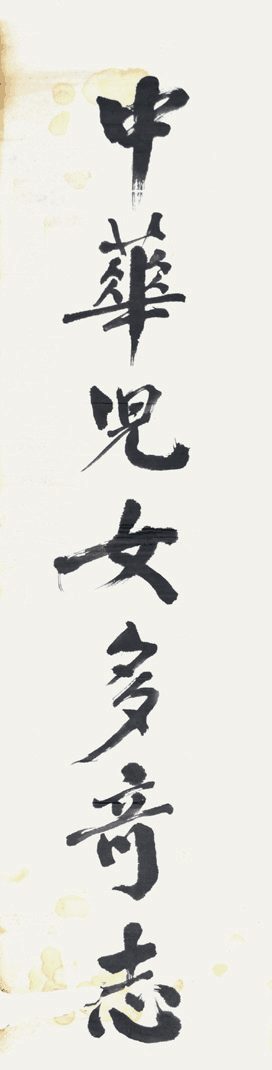 中華児女多奇志